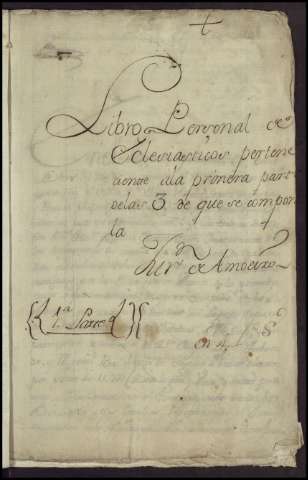 Libro Personal de
Eclesiasticos pertene
ciente a la primera parte
de las 3 de que se compon
la
Jurⁿ de Amoeiro
1.ª Parte
en 4